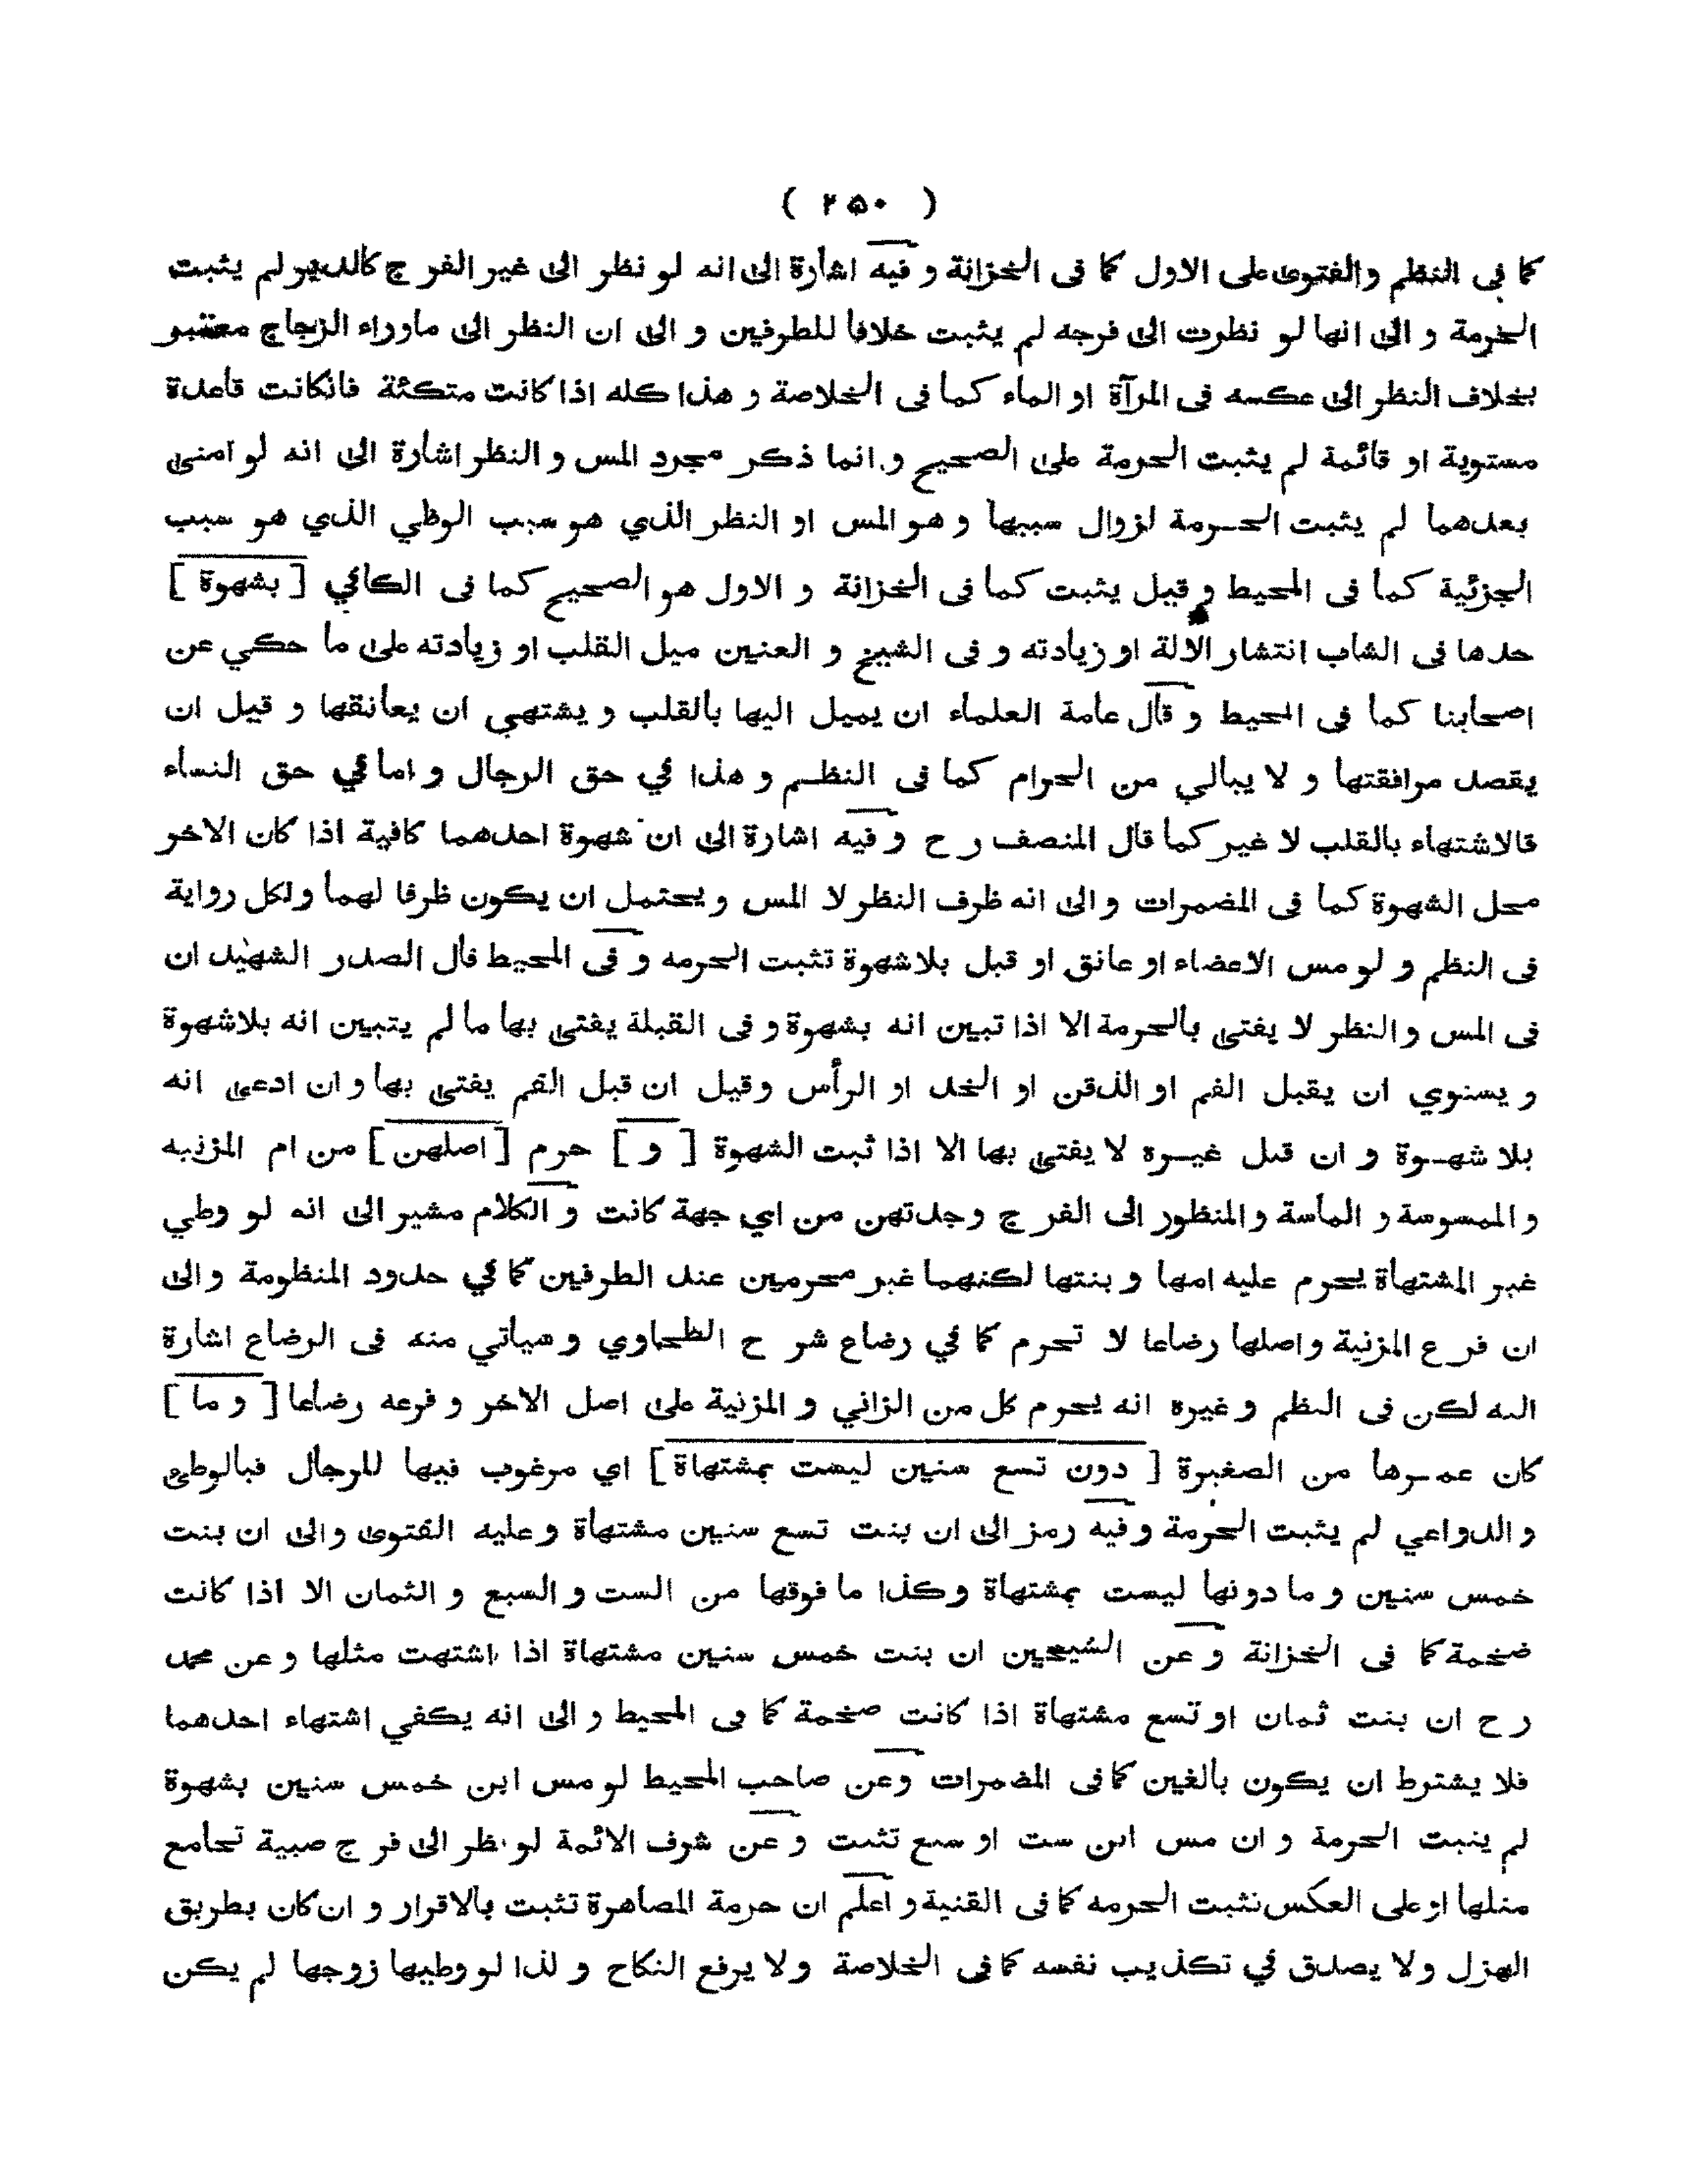 ( ٢٥٠ )
كما في النظم والفتوى على الاول كما فى الخزانة و فيه اشارة الى انه لو نظر الى غير الفرج كالدبر لم يثبت
الحرمة و الى انها لو نظرت الى فرجه لم يثبت خلافا للطرفين و الى ان النظر الى ماوراء الزجاج معتبر
بخلاف النظر الى عكسه فى المرآة او الماء كما فى الخلاصة و هذا كله اذا كانت متكئة فانكانت قاعدة
مستوية او قائمة لم يثبت الحرمة على الصحيح و انما ذكر مجرد المس و النظر اشارة الى انه لو امنى
بعدهما لم يثبت الحرمة لزوال سببها و هو المس او النظر الذي هو سبب الوطي الذي هو سبب
الجزئية كما فى المحيط و قيل يثبت كما فى الخزانة و الاول هو الصحيح كما فى الكافي [ بشهوة ]
حدها فى الشاب انتشار الالة او زيادته و فى الشيخ و العنين ميل القلب او زيادته على ما حكي عن
اصحابنا كما فى المحيط و قال عامة العلماء ان يميل اليها بالقلب و يشتهي ان يعانقها و قيل ان
يقصد مرافقتها و لا يبالي من الحرام كما فى النظم و هذا في حق الرجال و اما في حق النساء
فالاشتهاء بالقلب لا غير كما قال المنصف ر ح و فيه اشارة الى ان شهوة احدهما كافية اذا كان الاخر
محل الشهوة كما فى المضمرات و الى انه ظرف النظر لا المس و يحتمل ان يكون ظرفا لهما ولكل رواية
فى النظم و لو مس الاعضاء او عانق او قبل بلاشهوة تثبت الحرمه و فى المحيط قال الصدر الشهيد ان
فى المس و النظر لا يفتى بالحرمة الا اذا تبين انه بشهوة و فى القبلة يفتى بها ما لم يتبين انه بلاشهوة
و يستوي ان يقبل الفم او الذقن او الخد او الرأس وقيل ان قبل الفم يفتى بها و ان ادعى انه
بلا شهوة و ان قبل غيره لا يفتى بها الا اذا ثبت الشهوة [ و ] حرم [ اصلهن ] من ام المزنيه
و الممسوسة و الماسة والمنظور الى الفرج وجدتهن من اي جهة كانت و الكلام مشير الى انه لو وطي
غير المشتهاة يحرم عليه امها و بنتها لكنهما غير محرمين عند الطرفين كما في حدود المنظومة و الى
ان فرع المزنية واصلها رضاعا لا تحرم كما في رضاع شرح الطحاوي و سياتي منه فى الرضاع اشارة
اليه لكن فى النظم و غيره انه يحرم كل من الزاني و المزنية على اصل الاخر و فرعه رضاعا [ و ما ]
كان عمرها من الصغيرة [ دون تسع سنين ليست بمشتهاة ] اي مرغوب فيها للرجال فبالوطى
و الدواعي لم يثبت الحرمة وفيه رمز الى ان بنت تسع سنين مشتهاة و عليه الفتوى والى ان بنت
خمس سنين و ما دونها ليست بمشتهاة وكذا ما فوقها من الست و السبع و الثمان الا اذا كانت
ضخمة كما فى الخزانة و عن الشيخين ان بنت خمس سنين مشتهاة اذا اشتهت مثلها و عن محمد
ر ح ان بنت ثمان او تسع مشتهاة اذا كانت ضخمة كما فى المحيط و الى انه يكفي اشتهاء احدهما
فلا يشترط ان يكون بالغين كما فى المضمرات وعن صاحب المحيط لو مس ابن خمس سنين بشهوة
لم يثبت الحرمة و ان مس ابن ست او سبع تثبت و عن شرف الائمة لو نظر الى فرج صبية تجامع
مثلها او على العكس تثبت الحرمه كما فى القنية و اعلم ان حرمة المصاهرة تثبت بالاقرار و ان كان بطريق
الهزل ولا يصدق في تكذيب نفسه كما فى الخلاصة ولا يرفع النكاح و لذا لو وطيها زوجها لم يكن